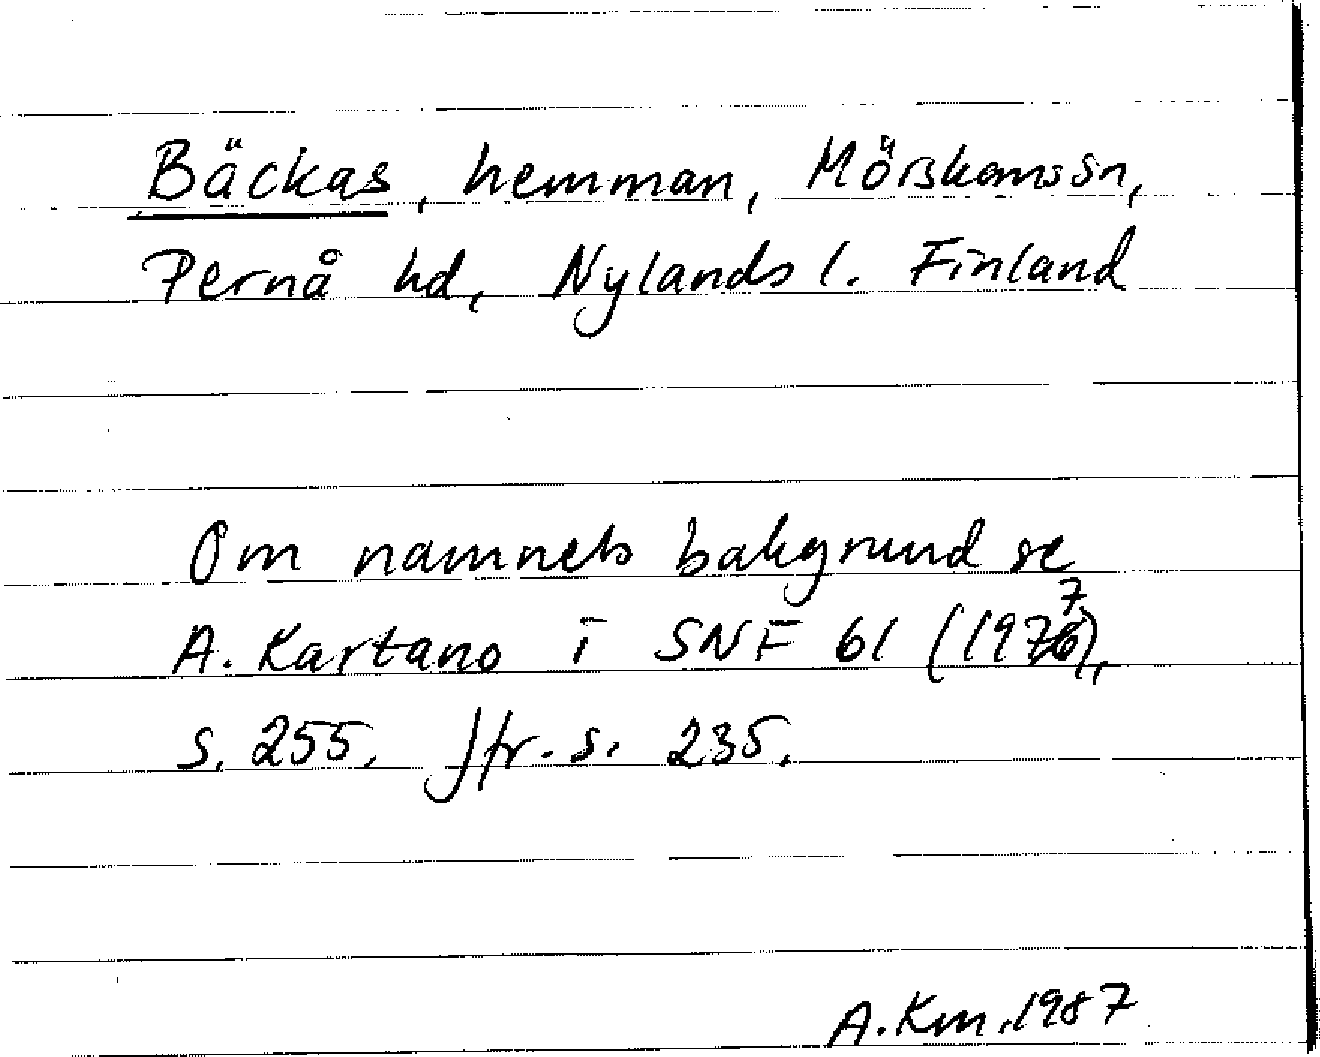 Bäckas, hemman, Mörskoms sn,
Pernå hd, Nylands l. Finland
Om namnets bakgrund se
A. Kartano i SNF 61 (1977),
s. 255. Jfr. s. 235.
A.Km.1987